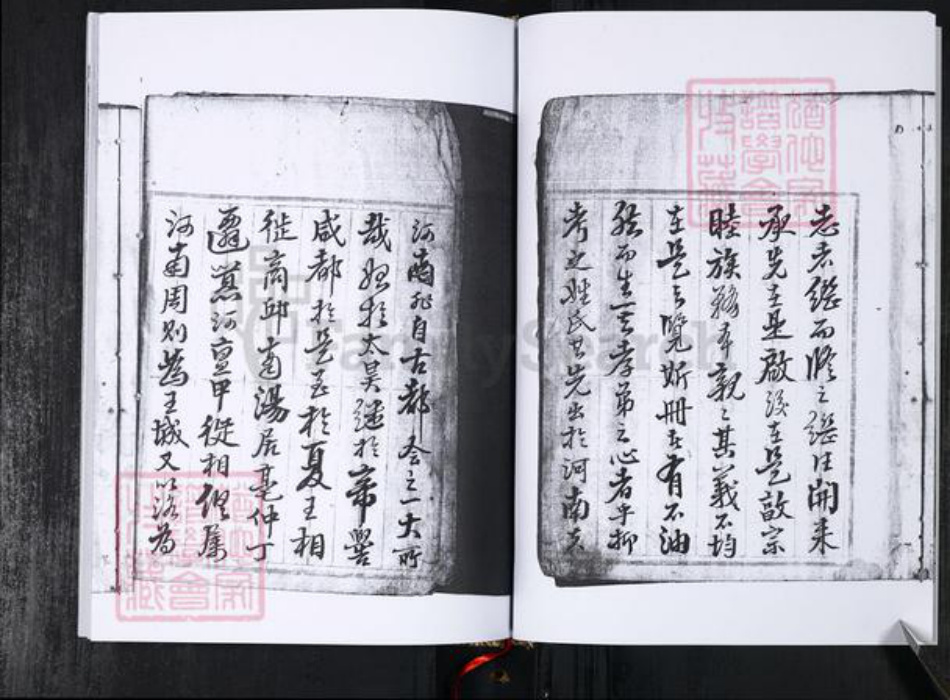 志者繼而修之繼往開来
承先在是啟後在是敬宗
睦族務本親親其義不均
在是与覽斯冊者有不油
然而生一孝弟之心者乎抑
考之姓氏其先出於河南夫
河南非自古都会之一大所
哉始於太昊遷於帝嚳
咸都於是至於夏王相
徙商邱南湯居亳仲丁
遷嚣河亶甲徙相俱属
河南周则為王城又以洛為
FamilySearch